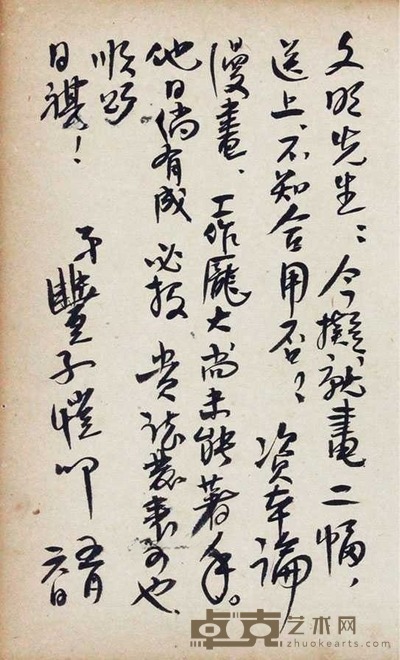 文明先生：今擬就畫二幅，
送上，不知合用否？資本論
漫畫、工作龐大尚未能著手。
他日倘有成必投 貴誌發表可也、
順頌
日祺！
弟豐子愷叩 五月
六日
卓克艺术网
zhuokearts.com